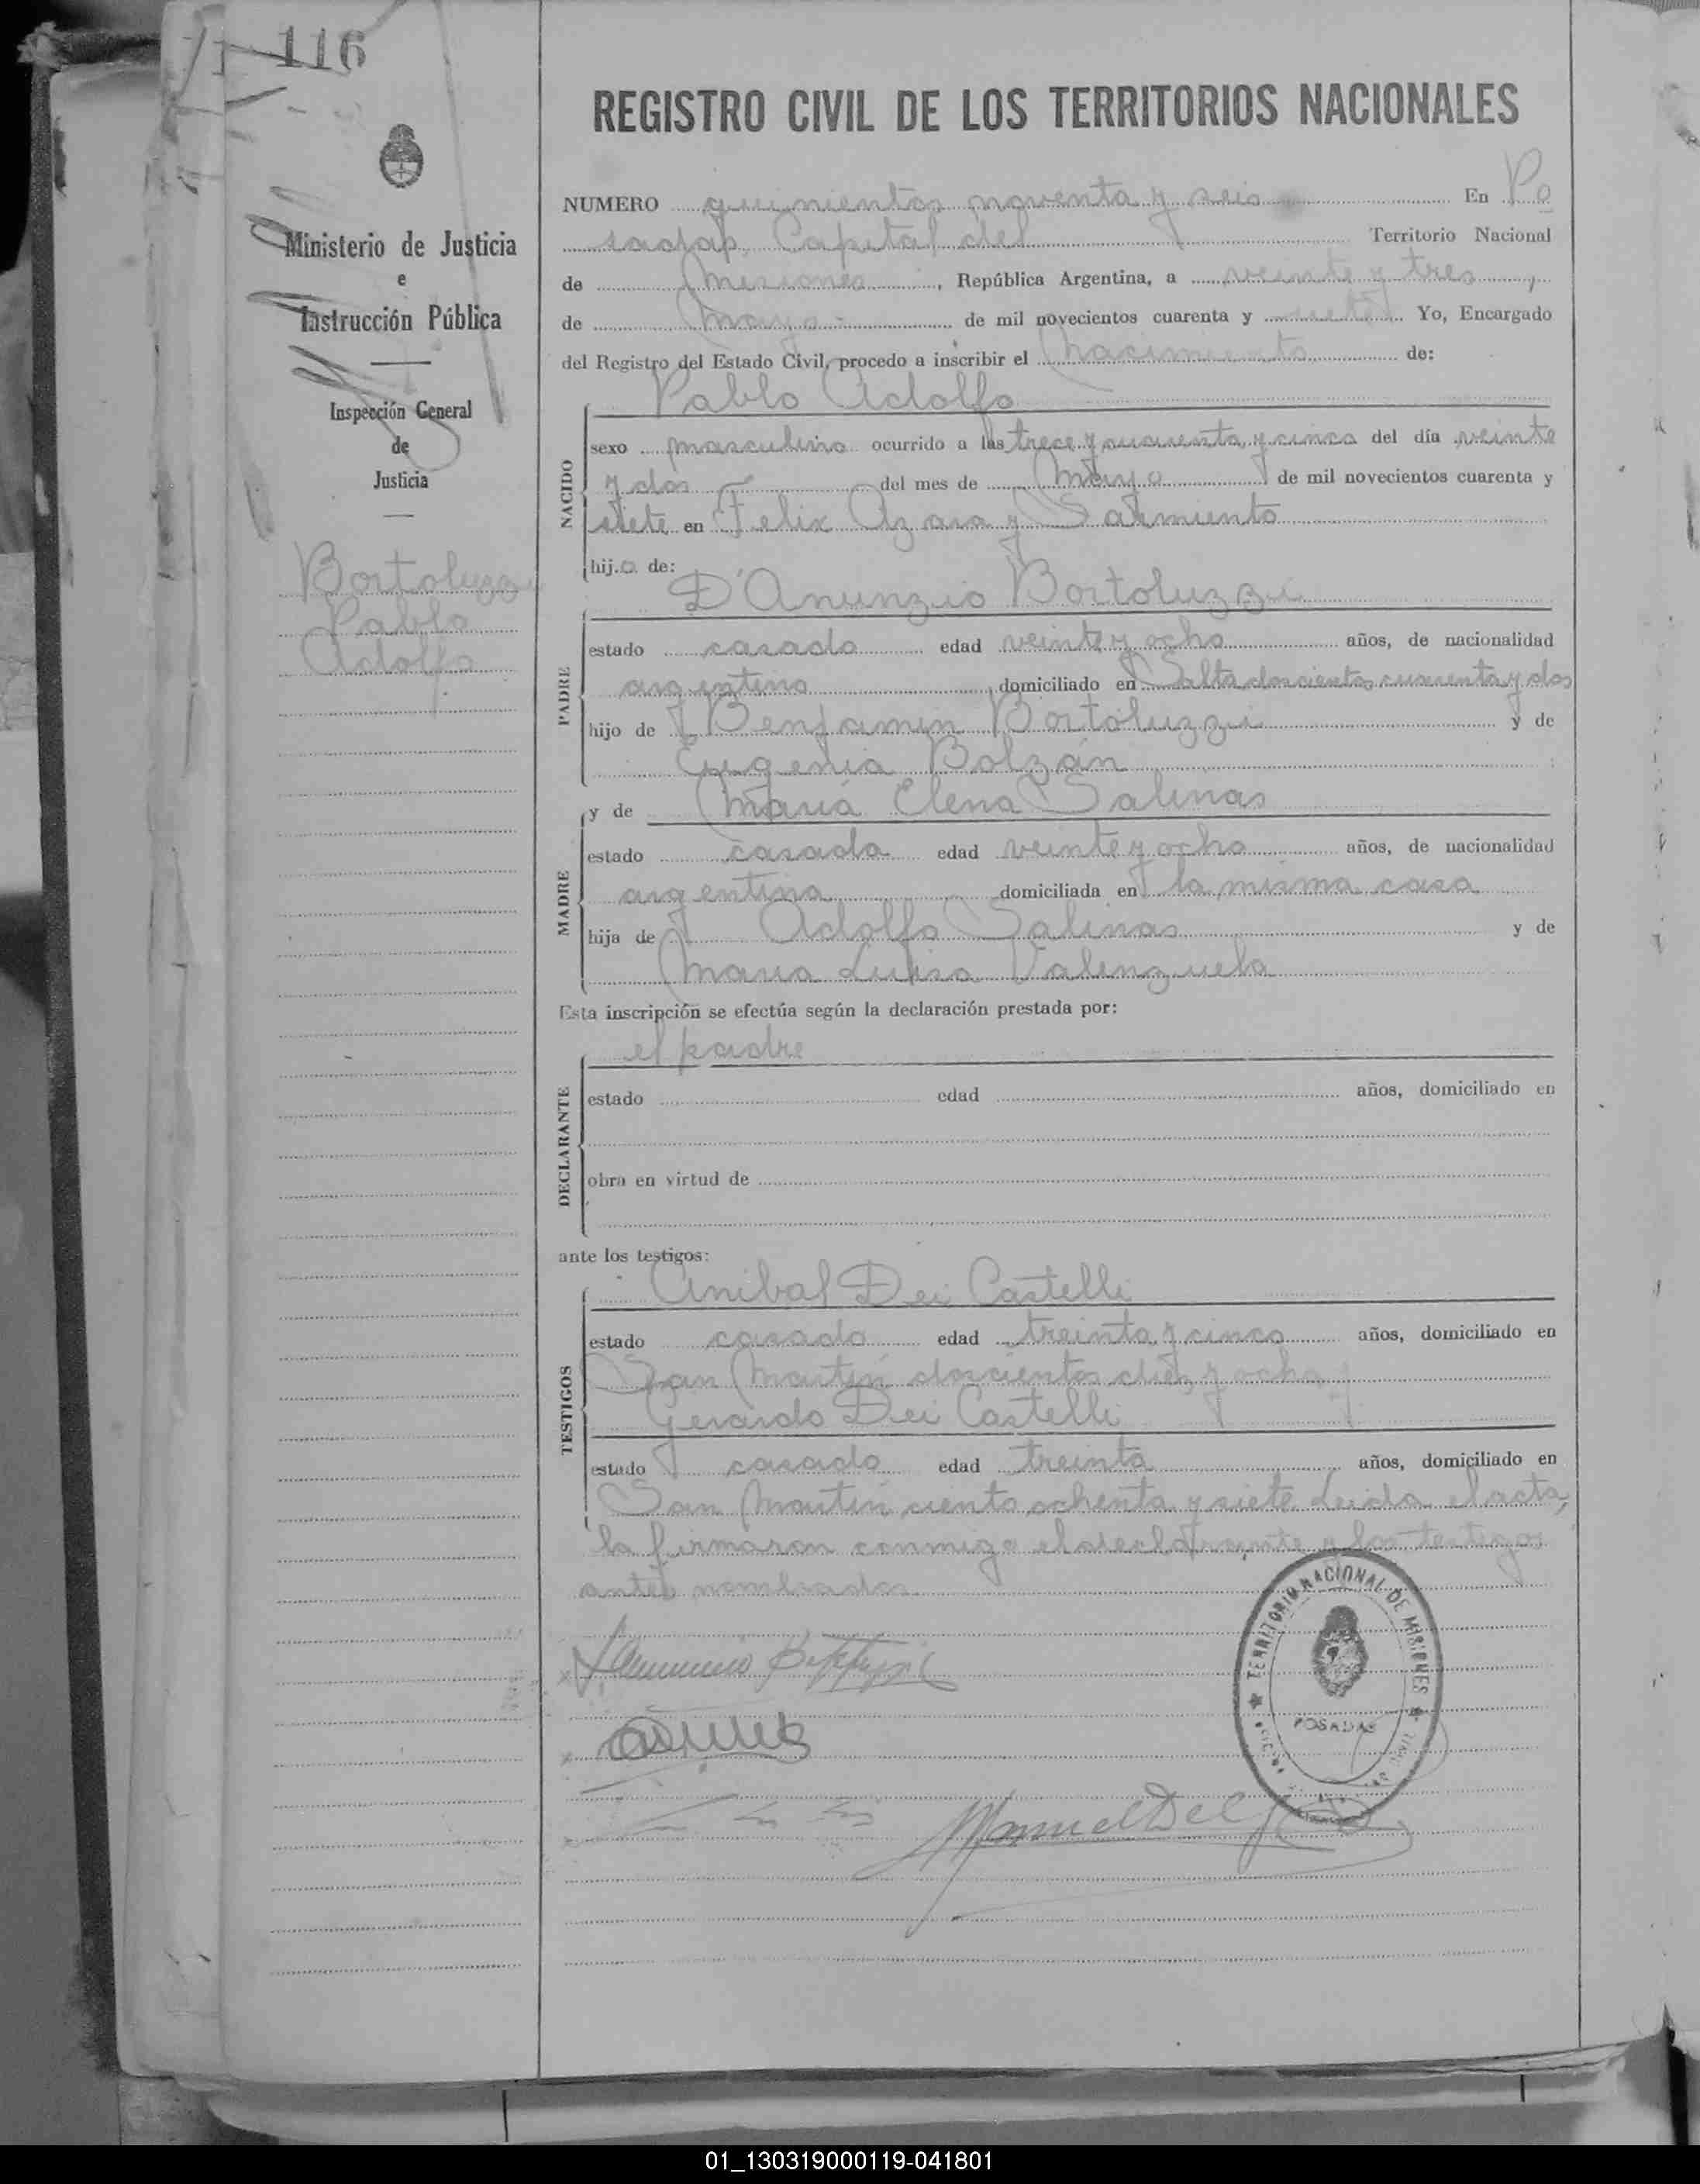 116
Ministerio de Justicia
e
Instrucción Pública
Inspección General
de
Justicia
Bortoluzzi
Pablo
Adolfo
REGISTRO CIVIL DE LOS TERRITORIOS NACIONALES
NUMERO quinientos noventa y seis En Po
sadas, Capital del Territorio Nacional
de Misiones, República Argentina, a veinte y tres
de Mayo de mil novecientos cuarenta y siete Yo, Encargado
del Registro del Estado Civil, procedo a inscribir el nacimiento de:
Pablo Adolfo
NACIDO
sexo masculino ocurrido a las trece y cuarenta y cinco del día veinte
y dos del mes de Mayo de mil novecientos cuarenta y
siete en Felix Azara y Sarmiento
hijo de:
D'Anunzio Bortoluzzi
PADRE
estado casado edad veinte y ocho años, de nacionalidad
argentino domiciliado en Salta doscientos cuarenta y dos
hijo de Benjamin Bortoluzzi y de
Eugenia Bolzán
y de María Elena Salinas
MADRE
estado casada edad veinte y ocho años, de nacionalidad
argentina domiciliada en la misma casa
hija de Adolfo Salinas y de
Maria Luisa Valenzuela
Esta inscripción se efectúa según la declaración prestada por:
el padre
DECLARANTE
estado edad años, domiciliado en
obra en virtud de
ante los testigos:
Anibal Dei Castelli
TESTIGOS
estado casado edad treinta y cinco años, domiciliado en
San Martín doscientos diez y ocho y
Gerardo Dei Castelli
estado casado edad treinta años, domiciliado en
San Martín ciento ochenta y siete Leida el acta,
la firmaron conmigo el declarante y los testigos
antes nombrados.
TERRITORIO NACIONAL DE MISIONES
POSADAS
Manuel Del
01_130319000119-041801